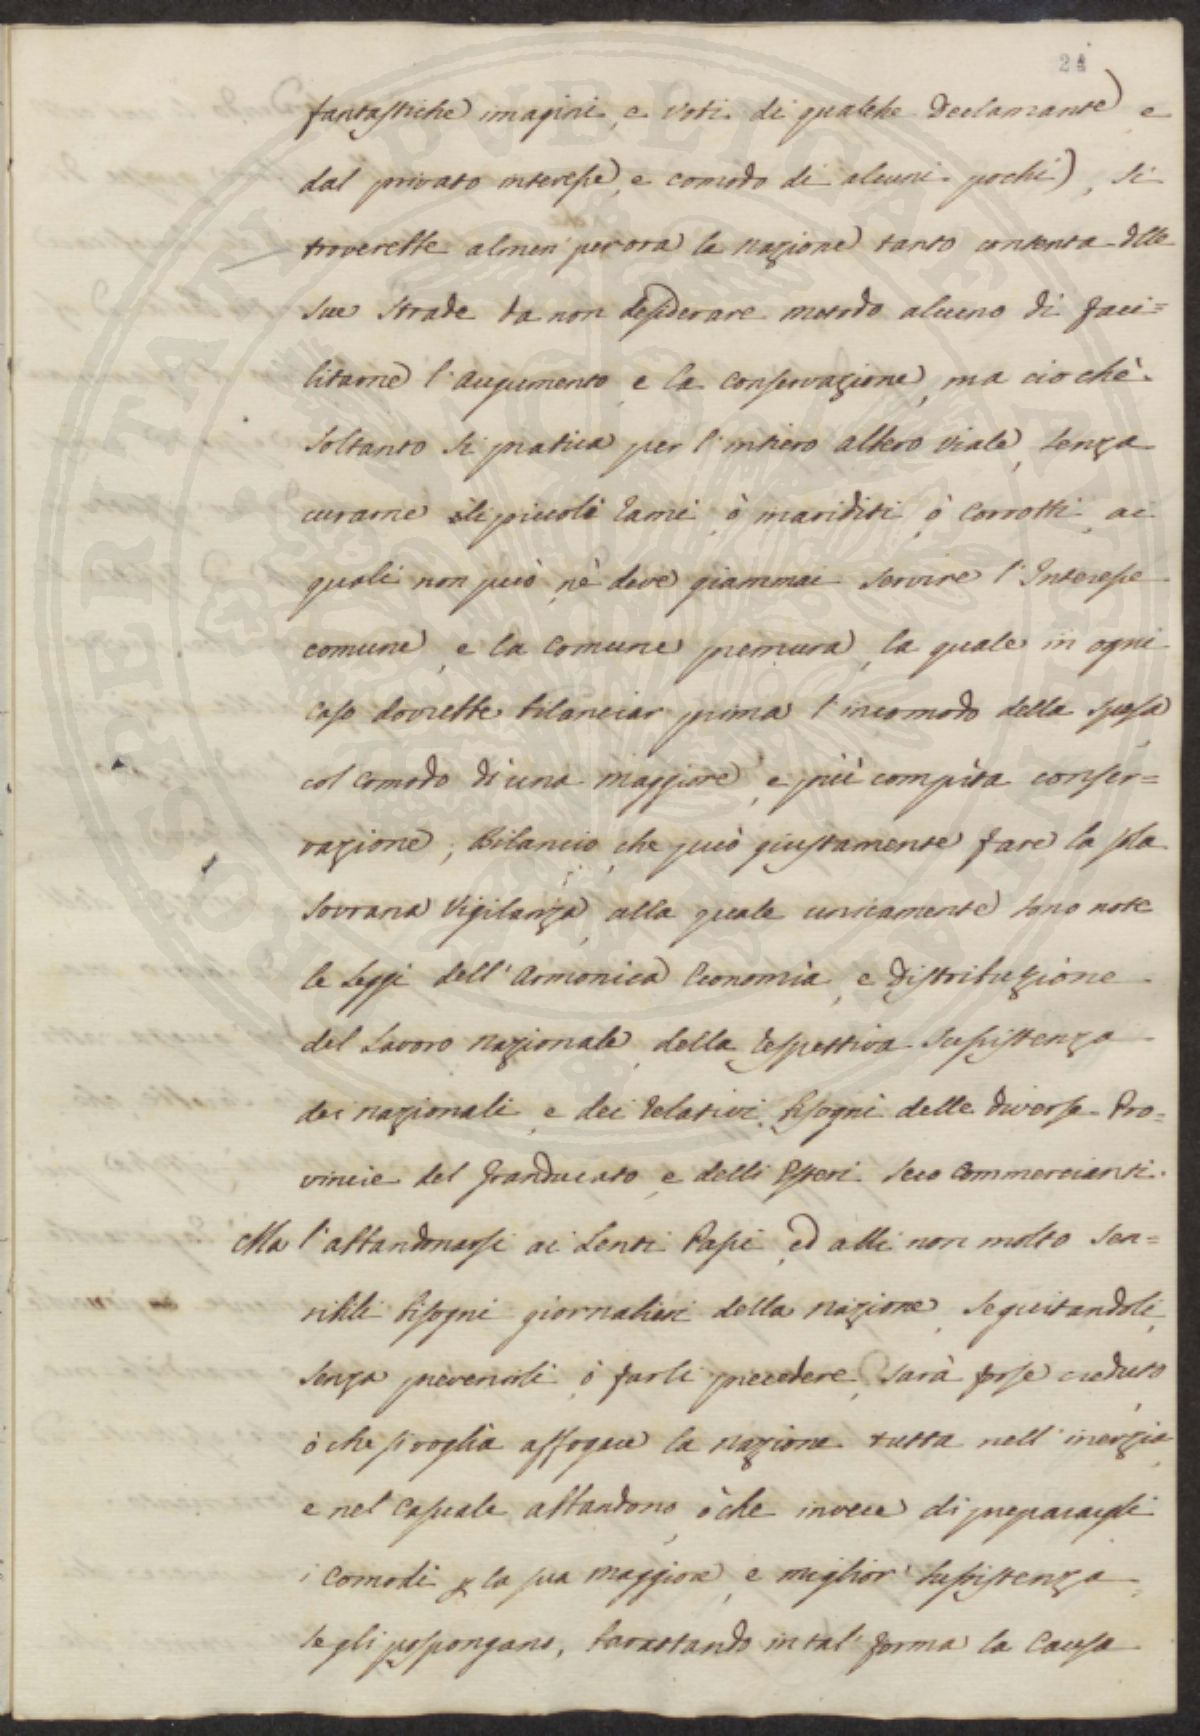 24
fantastiche imagini, e voti di qualche Declamante, e
dal privato interesse, e comodo di alcuni pochi), si
troverebbe almen' per ora la nazione tanto contenta dlle
sue strade da non desiderare metodo alcuno di faci=
litarne l'augumento, e la conservazione, ma ciochè
soltanto si pratica per l'intiero albero viale, senza
curarne li piccoli rami ò mariditi, ò corrotti, ai
quali non può nè deve giammai servire l'Interesse
comune, e la comune premura, la quale in ogni
caso dovrebbe bilanciar prima l'incomodo della spesa
col comodo di una maggiore, e più compita conser=
vazione; Bilancio, che può giustamente fare la sola
sovrana vigilanza, alla quale unicamente sono note
le Leggi dell'armonica Economia, e distribuzione
del Lavoro nazionale, della respettiva sussistenza
dei nazionali, e dei relativi bisogni delle diverse Pro=
vincie del Granducato, e delli Esteri seco commercianti.
Ma l'abbandonarsi ai Lenti Passi, ed alli non molto sen=
sibili bisogni giornalieri della nazione, seguitandoli,
senza prevenirli, ò farli precedere, sarà forse creduto
ò che si voglia affogare la nazione tutta nell'inerzia
e nel casuale abbandono, ò che invece di preparargli
i comodi p la sua maggiore, e miglior' sussistenza,
se gli pospongano, barattando in tal' forma la Causa